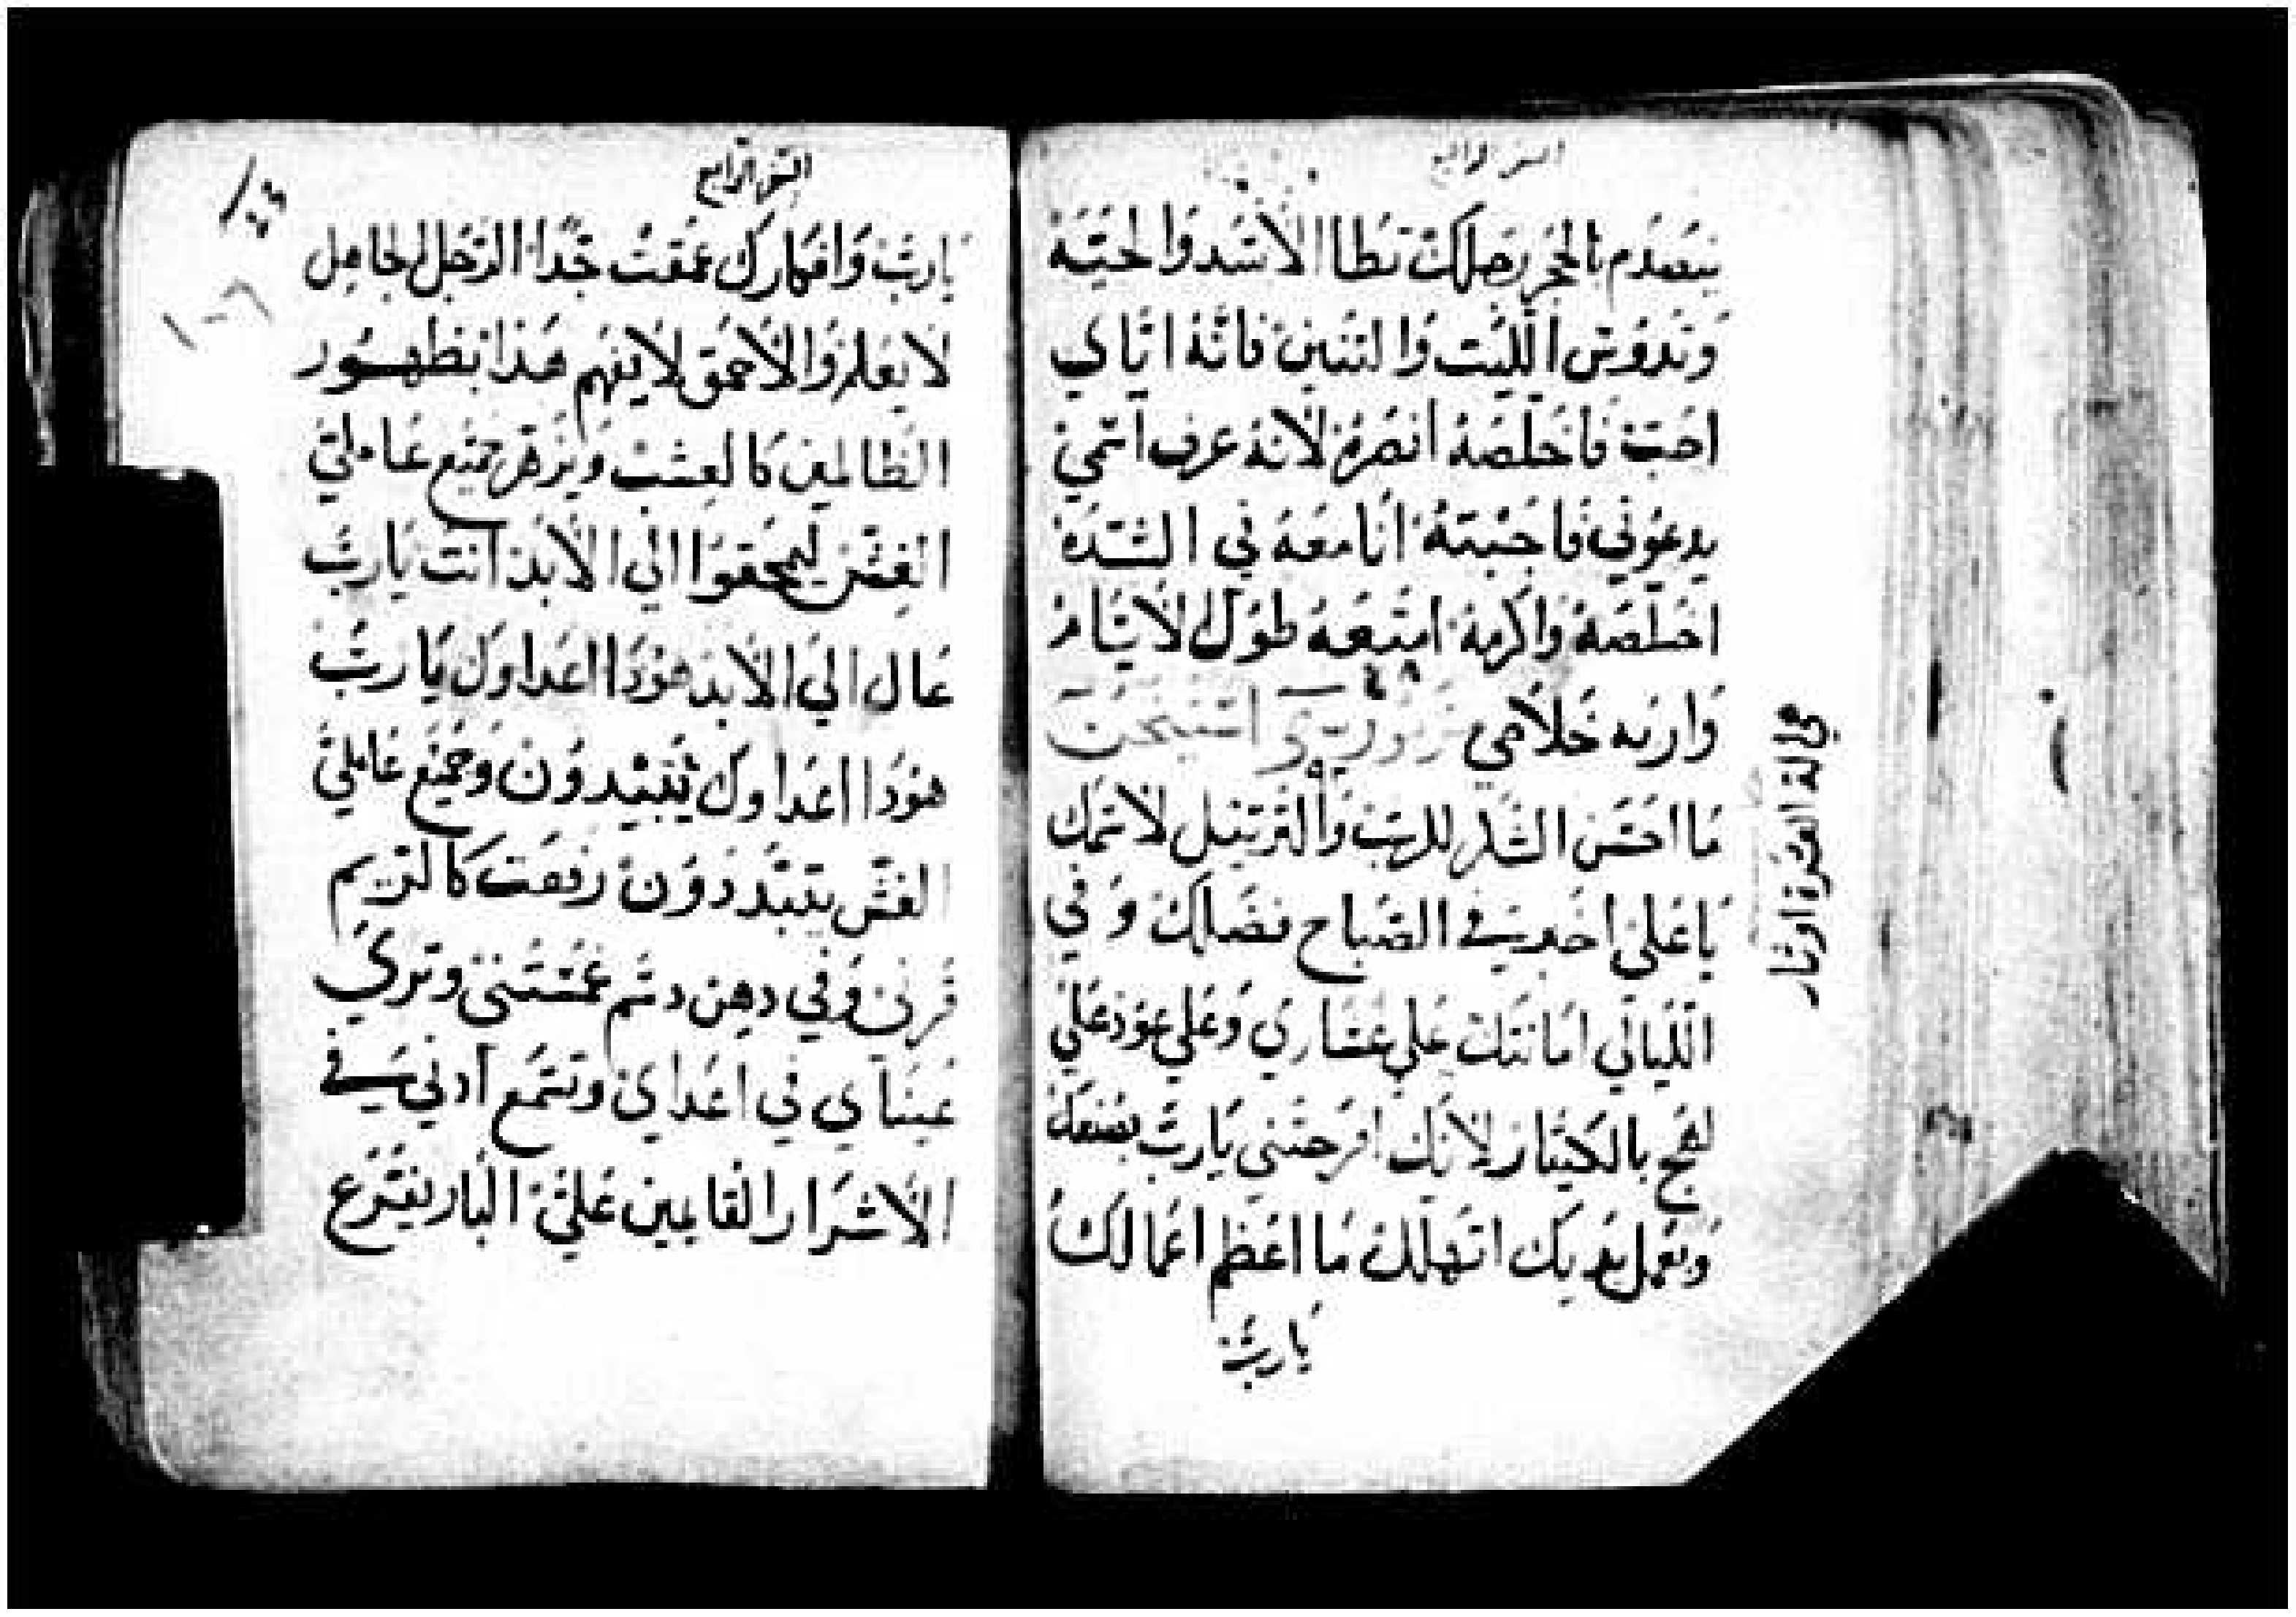 السفر الرابع
يتصدم بالحجر رجلك تطا الاسد والحية
وتدوس الليت والتنين فانه اياي
احب فاخلصه انصره لانه عرف اسمي
يدعوني فاجبته انا معه في الشده
اخلصه واكرمه امتعه طول الايام
واريه خلاصي
ما احسن الشكر للرب والترتيل لاسمك
يا علي اخبر في الصباح فضلك وفي
الليالي امانتك علي عشاري وعلي عود علي
لهج بالكيثار لانك افرحتني يارب بصنعك
وبعمل يديك اتهلل ما اعظم اعمالك
يارب
العشرة اوتار
السفر الرابع
يارب وافكارك عمقت جدا الرجل الجاهل
لا يعلم والاحمق لا يفهم هذا بظهور
الظالمين كالعشب ويزهر جميع عاملي
الغش ليمحقوا الي الابد انت يارب
عال الي الابد هوذا اعداوك يارب
هوذا اعداوك يبيدون وجميع عاملي
الغش يتبددون رفعت كالريم
قرني وفي دهن دسم غمستني وتري
عيناي في اعداي وتسمع ادني في
الاشرار القايمين علي البار يفرع